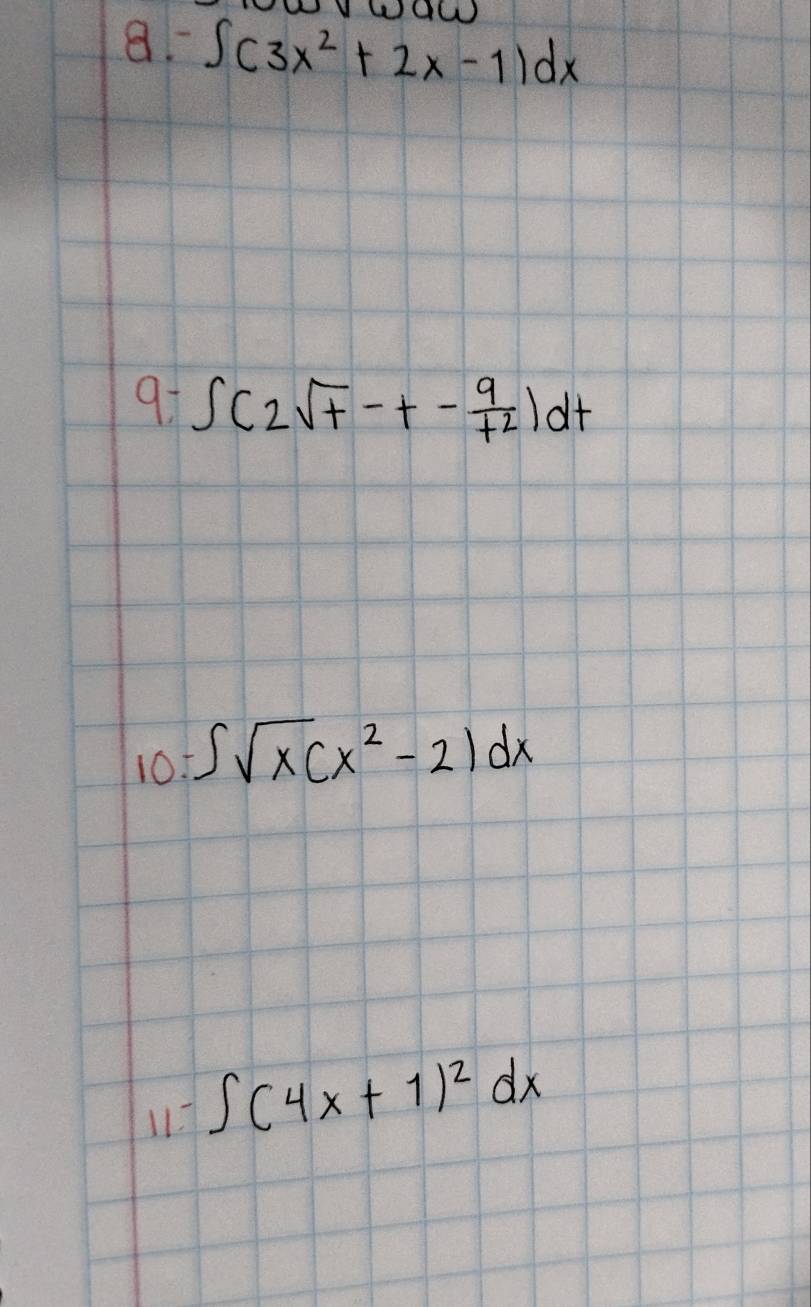 8.- ∫(3x² + 2x - 1)dx
9.- ∫(2√t - t - 9/t²)dt
10.- ∫√x(x² - 2)dx
11.- ∫(4x + 1)² dx